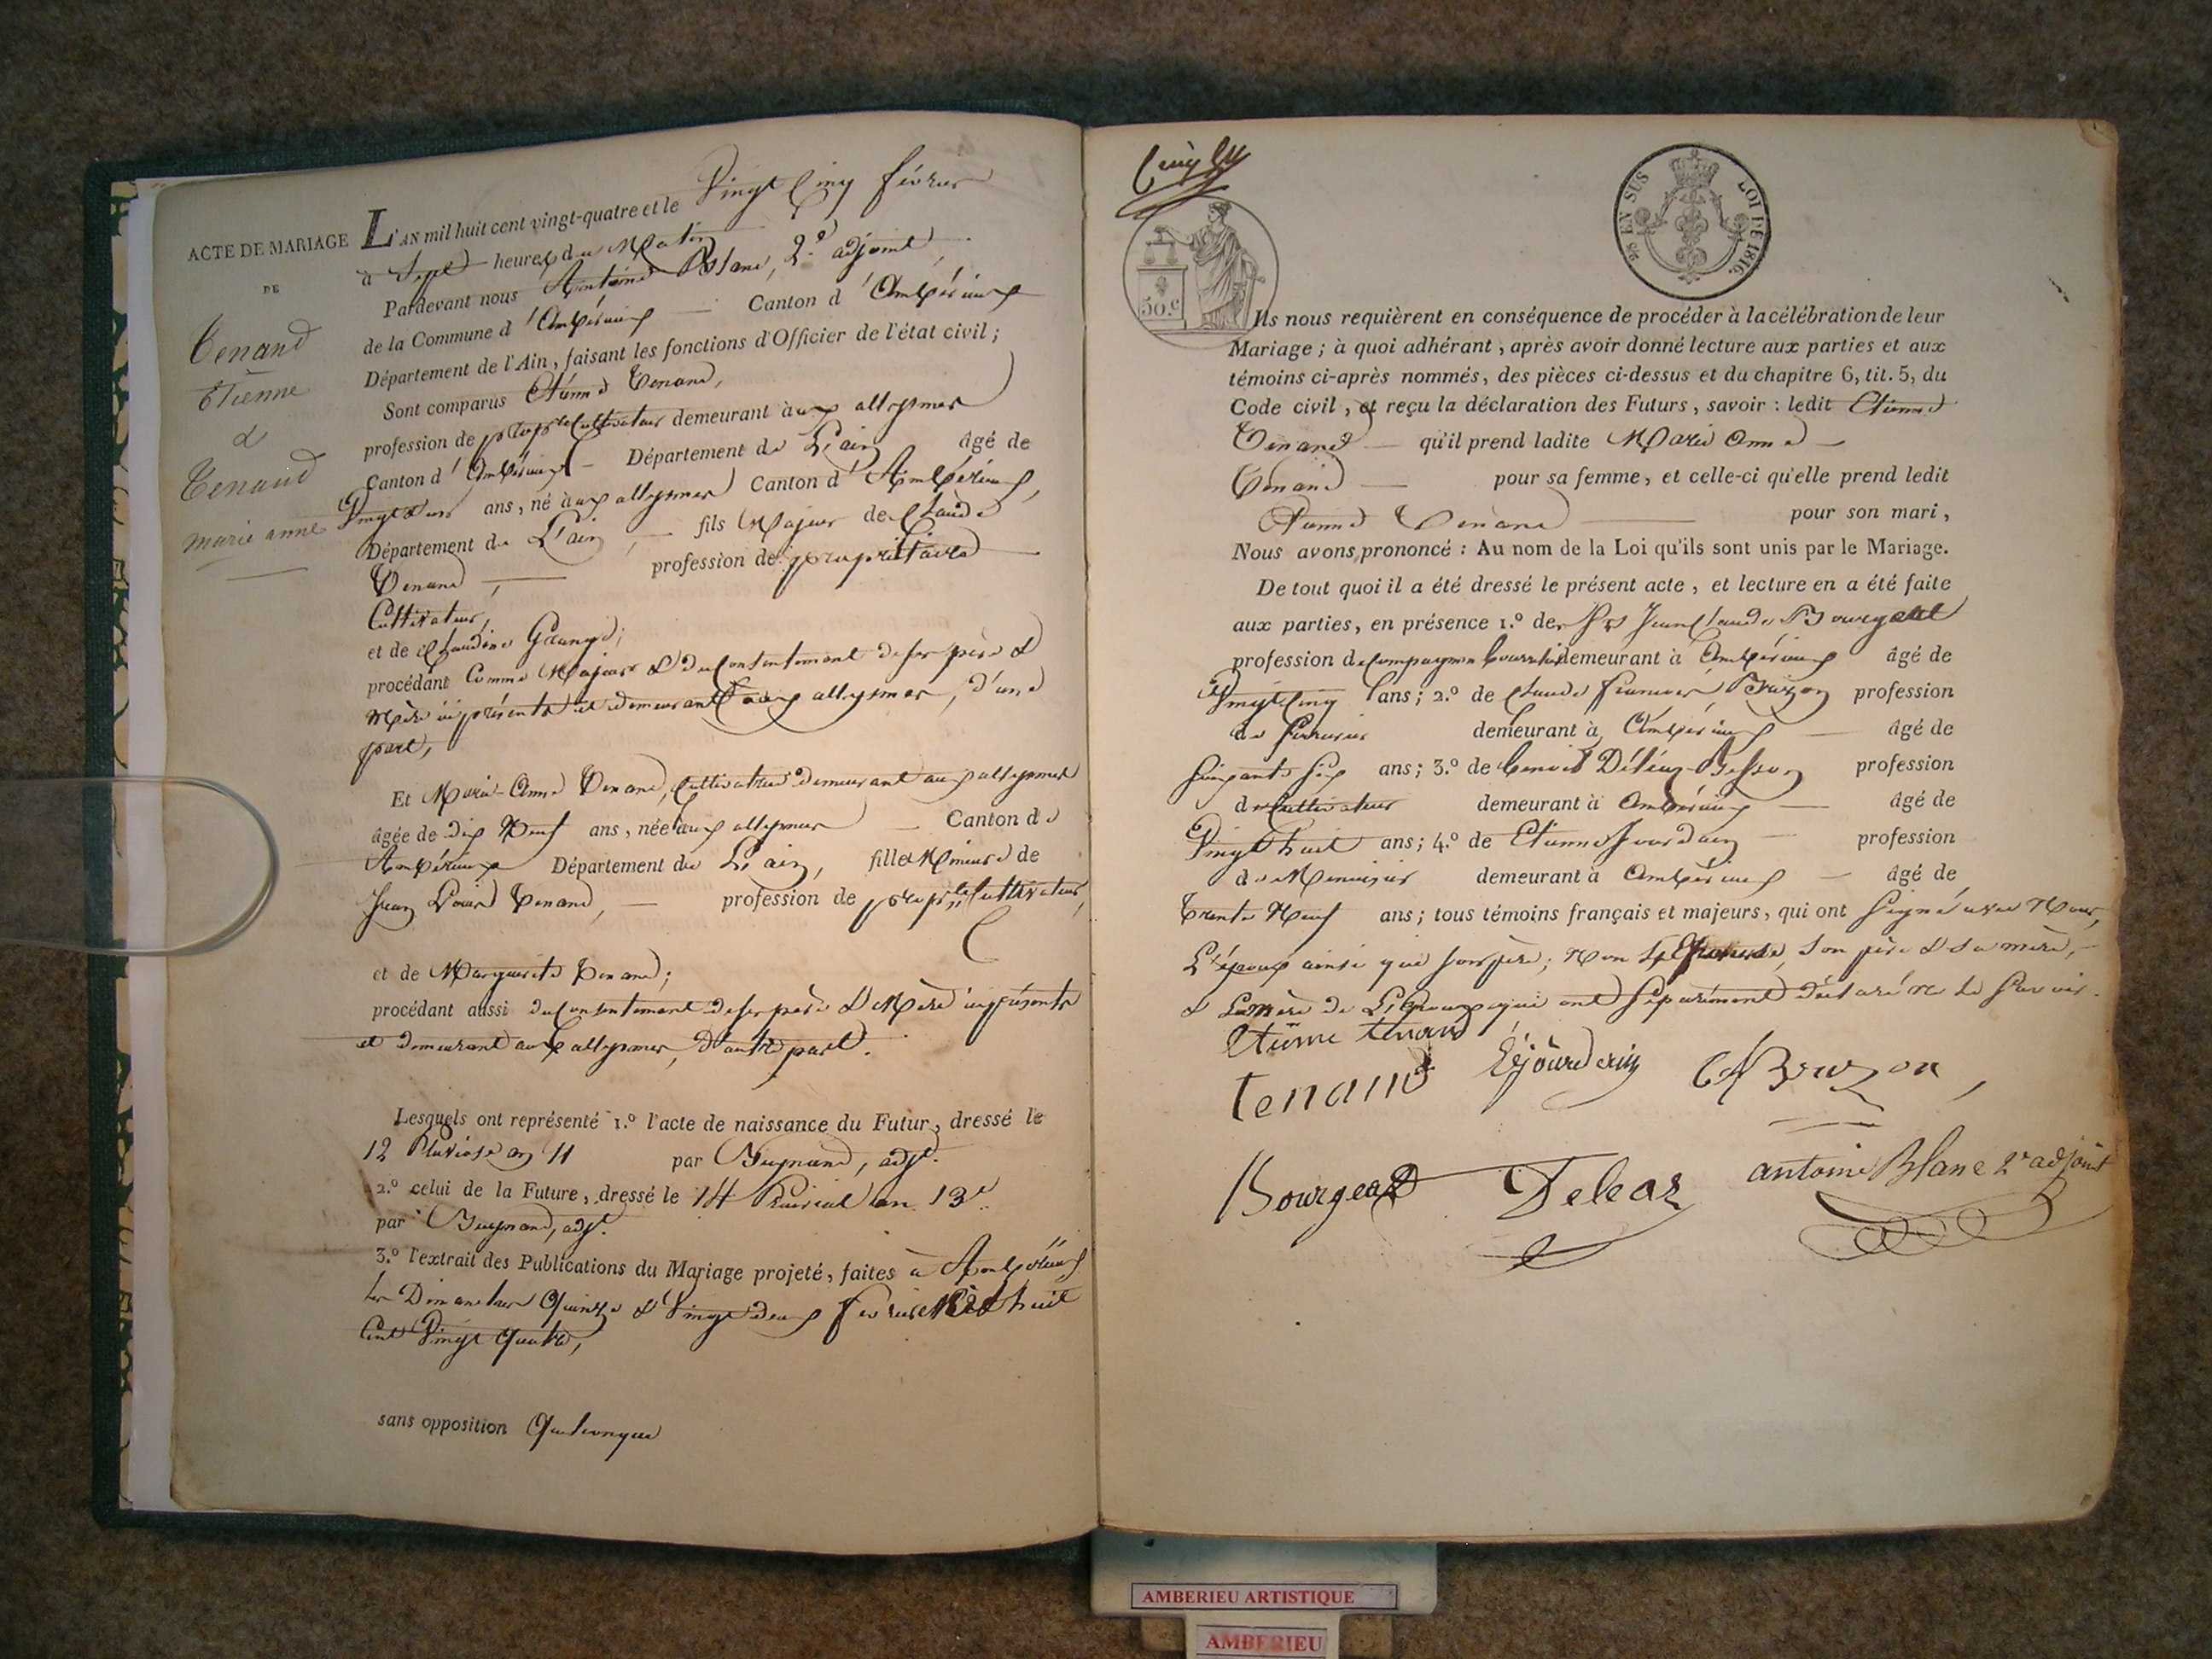 ACTE DE MARIAGE
DE
Tenand
Etienne
&
Tenand
marie anne
L'AN mil huit cent vingt-quatre et le Vingt Cinq février
à Sept heures du Matin
Pardevant nous Antoine Blanc, 2.e adjoint
de la Commune d'Ambérieux Canton d'Ambérieux
Département de l'Ain, faisant les fonctions d'Officier de l'état civil;
Sont comparus Etienne Tenand,
profession de prop.re Cultivateur demeurant aux allysmes
Canton d'Ambérieux Département de L'ain âgé de
Vingt un ans, né aux allysmes Canton d'Ambérieux,
Département de L'ain, fils Majeur de Claude
Tenand, profession de propriétaire
Cultivateur,
et de Claudine Grange;
procédant Comme Majeur & du Consentement de ses père &
Mère ici présents et demeurant aux allysmes, d'une
part,
Et Marie-Anne Tenand, Cultivatrice demeurant aux allysmes
âgée de dix Neuf ans, née aux allysmes Canton de
Ambérieux Département de L'ain, fille Mineure de
Jean Louis Tenand, profession de prop.re Cultivateur,
et de Marguerite Tenand;
procédant aussi du Consentement de ses père & Mère ici présents
et demeurant aux allysmes, d'autre part.
Lesquels ont représenté 1.º l'acte de naissance du Futur, dressé le
12 Pluviose an 11 par adj.t
2.º celui de la Future, dressé le 14 Prairial an 13.e
par adj.t
3.º l'extrait des Publications du Mariage projeté, faites à Ambérieux
les Dimanches Quinze & Vingt deux février Mil huit
Cent Vingt Quatre,
sans opposition Quelconque
EN SUS LOI DE 1816.
50.c
Ils nous requièrent en conséquence de procéder à la célébration de leur
Mariage; à quoi adhérant, après avoir donné lecture aux parties et aux
témoins ci-après nommés, des pièces ci-dessus et du chapitre 6, tit. 5, du
Code civil, et reçu la déclaration des Futurs, savoir : ledit Etienne
Tenand qu'il prend ladite Marie Anne
Tenand pour sa femme, et celle-ci qu'elle prend ledit
Etienne Tenand pour son mari,
Nous avons prononcé : Au nom de la Loi qu'ils sont unis par le Mariage.
De tout quoi il a été dressé le présent acte, et lecture en a été faite
aux parties, en présence 1.º de Srs Jean Claude Bourgeat
profession de Compagnon Bourrelier demeurant à Ambérieux âgé de
Vingt Cinq ans; 2.º de Claude François Bruzon profession
de Serrurier demeurant à Ambérieux âgé de
Cinquante Six ans; 3.º de Benoit Déléaz-Besson profession
de Cultivateur demeurant à Ambérieux âgé de
Vingt huit ans; 4.º de Etienne Jourdain profession
de Menuisier demeurant à Ambérieux âgé de
Trente Neuf ans; tous témoins français et majeurs, qui ont Signé avec Nous,
L'époux ainsi que son père; Non L'Epouse, Son père & Sa mère,
& La mère de L'Epoux qui ont Séparément déclaré ne le Savoir.
Etienne tenand
tenand Ejourdain CFBruzon
Bourgeat Deleaz antoine Blanc 2e adjoint
AMBERIEU ARTISTIQUE
AMBERIEU